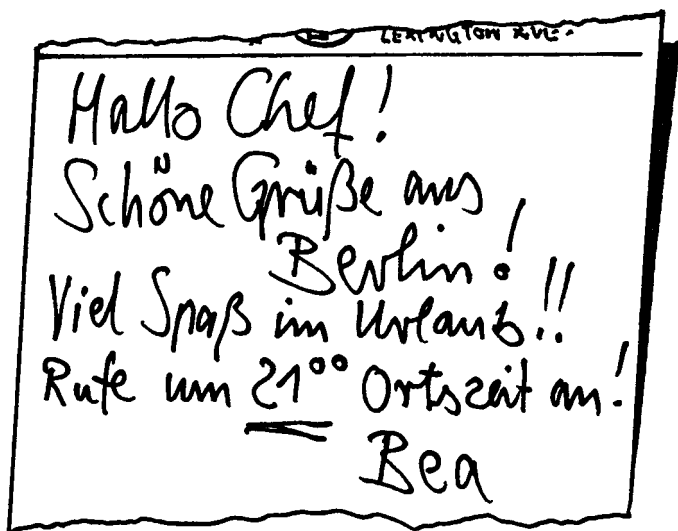 LEXINGTON AVE.
Hallo Chef!
Schöne Grüße aus
Berlin!
Viel Spaß im Urlaub!!
Rufe um 21°° Ortszeit an!
Bea